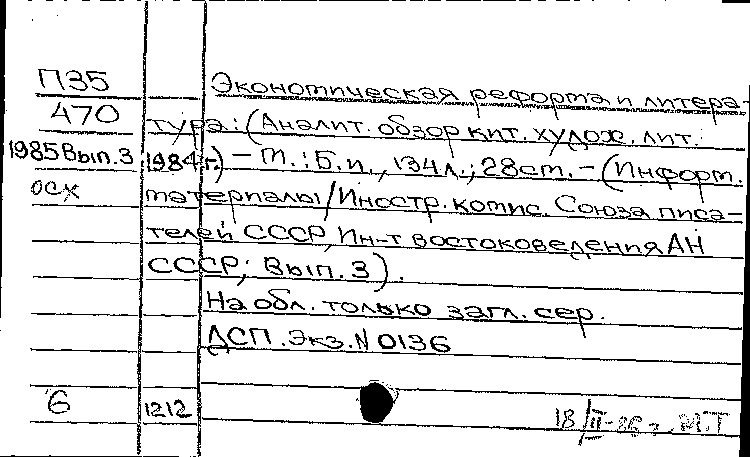 П35 Экономическая реформа и литера-
470 тура: (Аналит. обзор кит. худож. лит.
1985 Вып. 3 1984 г.) – М.: Б.и., 134 л.; 28 см. – (Информ.
осх материалы / Иностр. комис. Союза писа-
телей СССР, Ин-т востоковедения АН
СССР; Вып. 3).
На обл. только загл. сер.
ДСП. Экз. N 0136
6 1212
18/II-86 г. М.Т